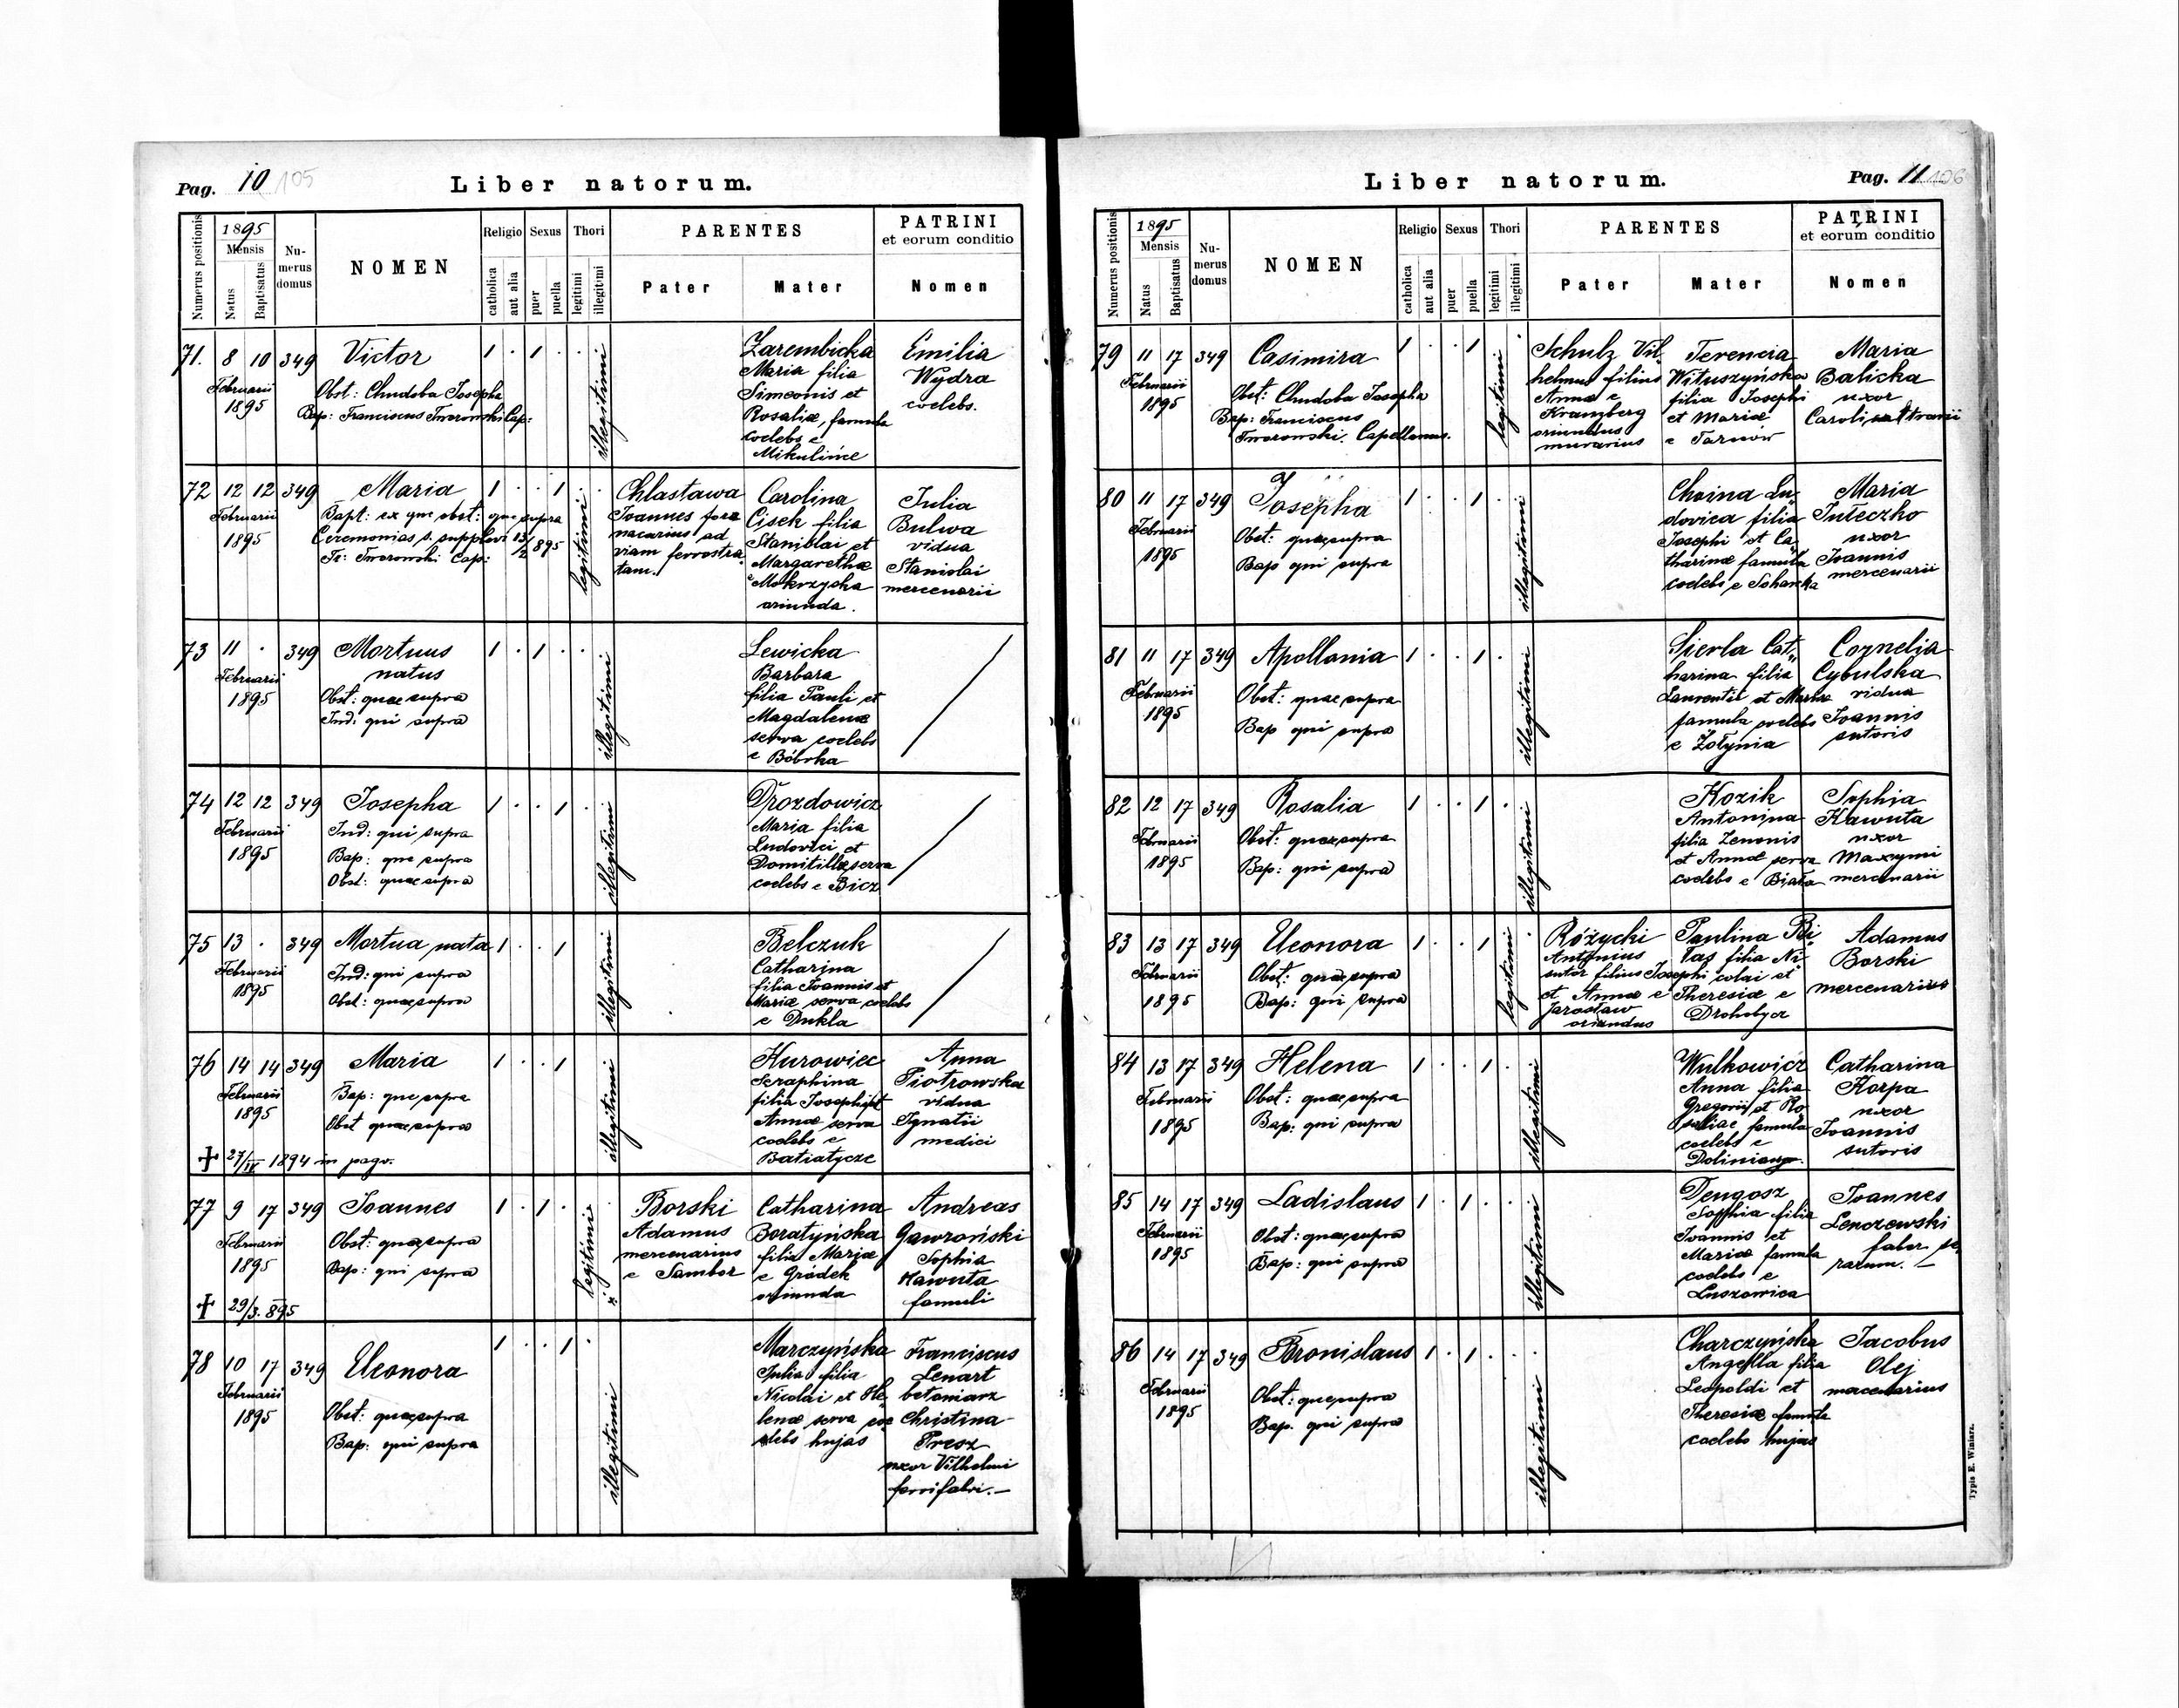 Pag. 10 105
Liber natorum.
Numerus positionis
1895
Mensis
Natus
Baptisatus
Nu-
merus
domus
NOMEN
Religio
catholica
aut alia
Sexus
puer
puella
Thori
legitimi
illegitimi
PARENTES
Pater
Mater
PATRINI
et eorum conditio
Nomen
71. 8 10 349 Victor 1 . 1 . .
Februarii
1895
Obst: Chudoba Josepha
Bap: Franciscus Tworowski Cap:
illegitimi
Zarembicka
Maria filia
Simeonis et
Rosaliæ, famula
coelebs e
Mikulińce
Emilia
Wydra
coelebs.
72 12 12 349 Maria 1 . . 1 . .
Februarii
1895
Bapt: ex que obst: que supra
Ceremonias s. supplevi 13/2 895
Fr: Tworowski Cap:
legitimi
Chlastawa
Joannes for=
nacarius ad
viam ferrostra
tam.
Carolina
Cisek filia
Stanislai et
Margarethæ
e Mokrzyska
oriunda.
Julia
Bulwa
vidua
Stanislai
mercenarii
73 11 . 349 Mortuus 1 . 1 . .
natus
Februarii
1895
Obst: quae supra
Ind: qui supra
illegitimi
Lewicka
Barbara
filia Pauli et
Magdalenæ
serva coelebs
e Bóbrka
74 12 12 349 Josepha 1 . . 1 .
Februarii
1895
Ind: qui supra
Bap: que supra
Obst: quae supra
illegitimi
Drozdowicz
Maria filia
Ludovici et
Domitillæ serva
coelebs e Bicz
75 13 . 349 Mortua nata 1 . . 1
Februarii
1895
Ind: qui supra
Obst: quae supra
illegitimi
Belczuk
Catharina
filia Joannis et
Mariæ serva coelebs
e Dukla
76 14 14 349 Maria 1 . . 1
Februarii
1895
Bap: que supra
Obst quae supra
+ 27/IV 1894 in pago.
illegitimi
Kurowiec
Seraphina
filia Josephi et
Annæ serva
coelebs e
Batiatycze
Anna
Piotrowska
vidua
Ignatii
medici
77 9 17 349 Joannes 1 . 1 .
Februarii
1895
Obst: quae supra
Bap: qui supra
+ 29/3. 895
legitimi
Borski
Adamus
mercenarius
e Sambor
Catharina
Boratyńska
filia Mariæ
e Gródek
oriunda
Andreas
Gawroński
Sophia
Kawuta
famuli
78 10 17 349 Eleonora 1 . . 1 .
Februarii
1895
Obst: quae supra
Bap: qui supra
illegitimi
Marczyńska
Julia filia
Nicolai et He,
lenæ serva coe
elebs hujas
Franciscus
Lenart
betoniarz
Christina
Presz
uxor Vilhelmi
ferrifabri.—
Liber natorum.
Pag. 11 106
Numerus positionis
1895
Mensis
Natus
Baptisatus
Nu-
merus
domus
NOMEN
Religio
catholica
aut alia
Sexus
puer
puella
Thori
legitimi
illegitimi
PARENTES
Pater
Mater
PATRINI
et eorum conditio
Nomen
79 11 17 349 Casimira 1 . . 1 .
Februarii
1895
Obst: Chudoba Josepha
Bap: Franciscus
Tworowski. Capellanus.
legitimi
Schulz Vil,
helmus filius
Annæ e
Kranzberg
oriundus
murarius
Terencia
Wituszyńska
filia Josephi
et Mariæ
e Tarnów
Maria
Balicka
uxor
Caroli
80 11 17 349 Josepha 1 . . 1 .
Februarii
1895
Obst: quae supra
Bap qui supra
illegitimi
Choina Lu,
dovica filia
Josephi et Ca,
tharinæ famula
coelebs e
Maria
Juteczko
uxor
Joannis
mercenarii
81 11 17 349 Apollonia 1 . . 1 .
Februarii
1895
Obst: quae supra
Bap qui supra
illegitimi
Sierla Cat,,
harina filia
Laurentii et Marthæ
famula coelebs
e Żołynia
Cornelia
Cybulska
vidua
Joannis
sutoris
82 12 17 349 Rosalia 1 . . 1 .
Februarii
1895
Obst: quae supra
Bap: qui supra
illegitimi
Kozik
Antonina
filia Zenonis
et Annæ serva
coelebs e Biała
Sophia
Kawuta
uxor
Maxymi
mercenarii
83 13 17 349 Eleonora 1 . . 1 .
Februarii
1895
Obst: quae supra
Bap: qui supra
legitimi
Różycki
Antonius
sutor filius Josephi
et Annæ e
Jarosław
oriundus
Paulina Bi,
łas filia Ni,
colai et
Theresiæ e
Drohobycz
Adamus
Borski
mercenarius
84 13 17 349 Helena 1 . . 1 .
Februarii
1895
Obst: quae supra
Bap: qui supra
illegitimi
Wulkowicz
Anna filia
Gregorii et Ro
saliae famula
coelebs e
Catharina
Korpa
uxor
Joannis
sutoris
85 14 17 349 Ladislaus 1 . 1 . . .
Februarii
1895
Obst: quae supra
Bap: qui supra
illegitimi
Dengosz
Sophia filia
Joannis et
Mariæ famula
coelebs e
Luszowica
Joannes
Lenczewski
faber se,
rarum.—
86 14 17 349 Bronislaus 1 . 1 . . .
Februarii
1895
Obst: que supra
Bap. qui supra
illegitimi
Charczyńska
Angella filia
Leopoldi et
Theresiæ famula
coelebs hujas
Jacobus
Olej
mercenarius
Typis E. Winiarz.